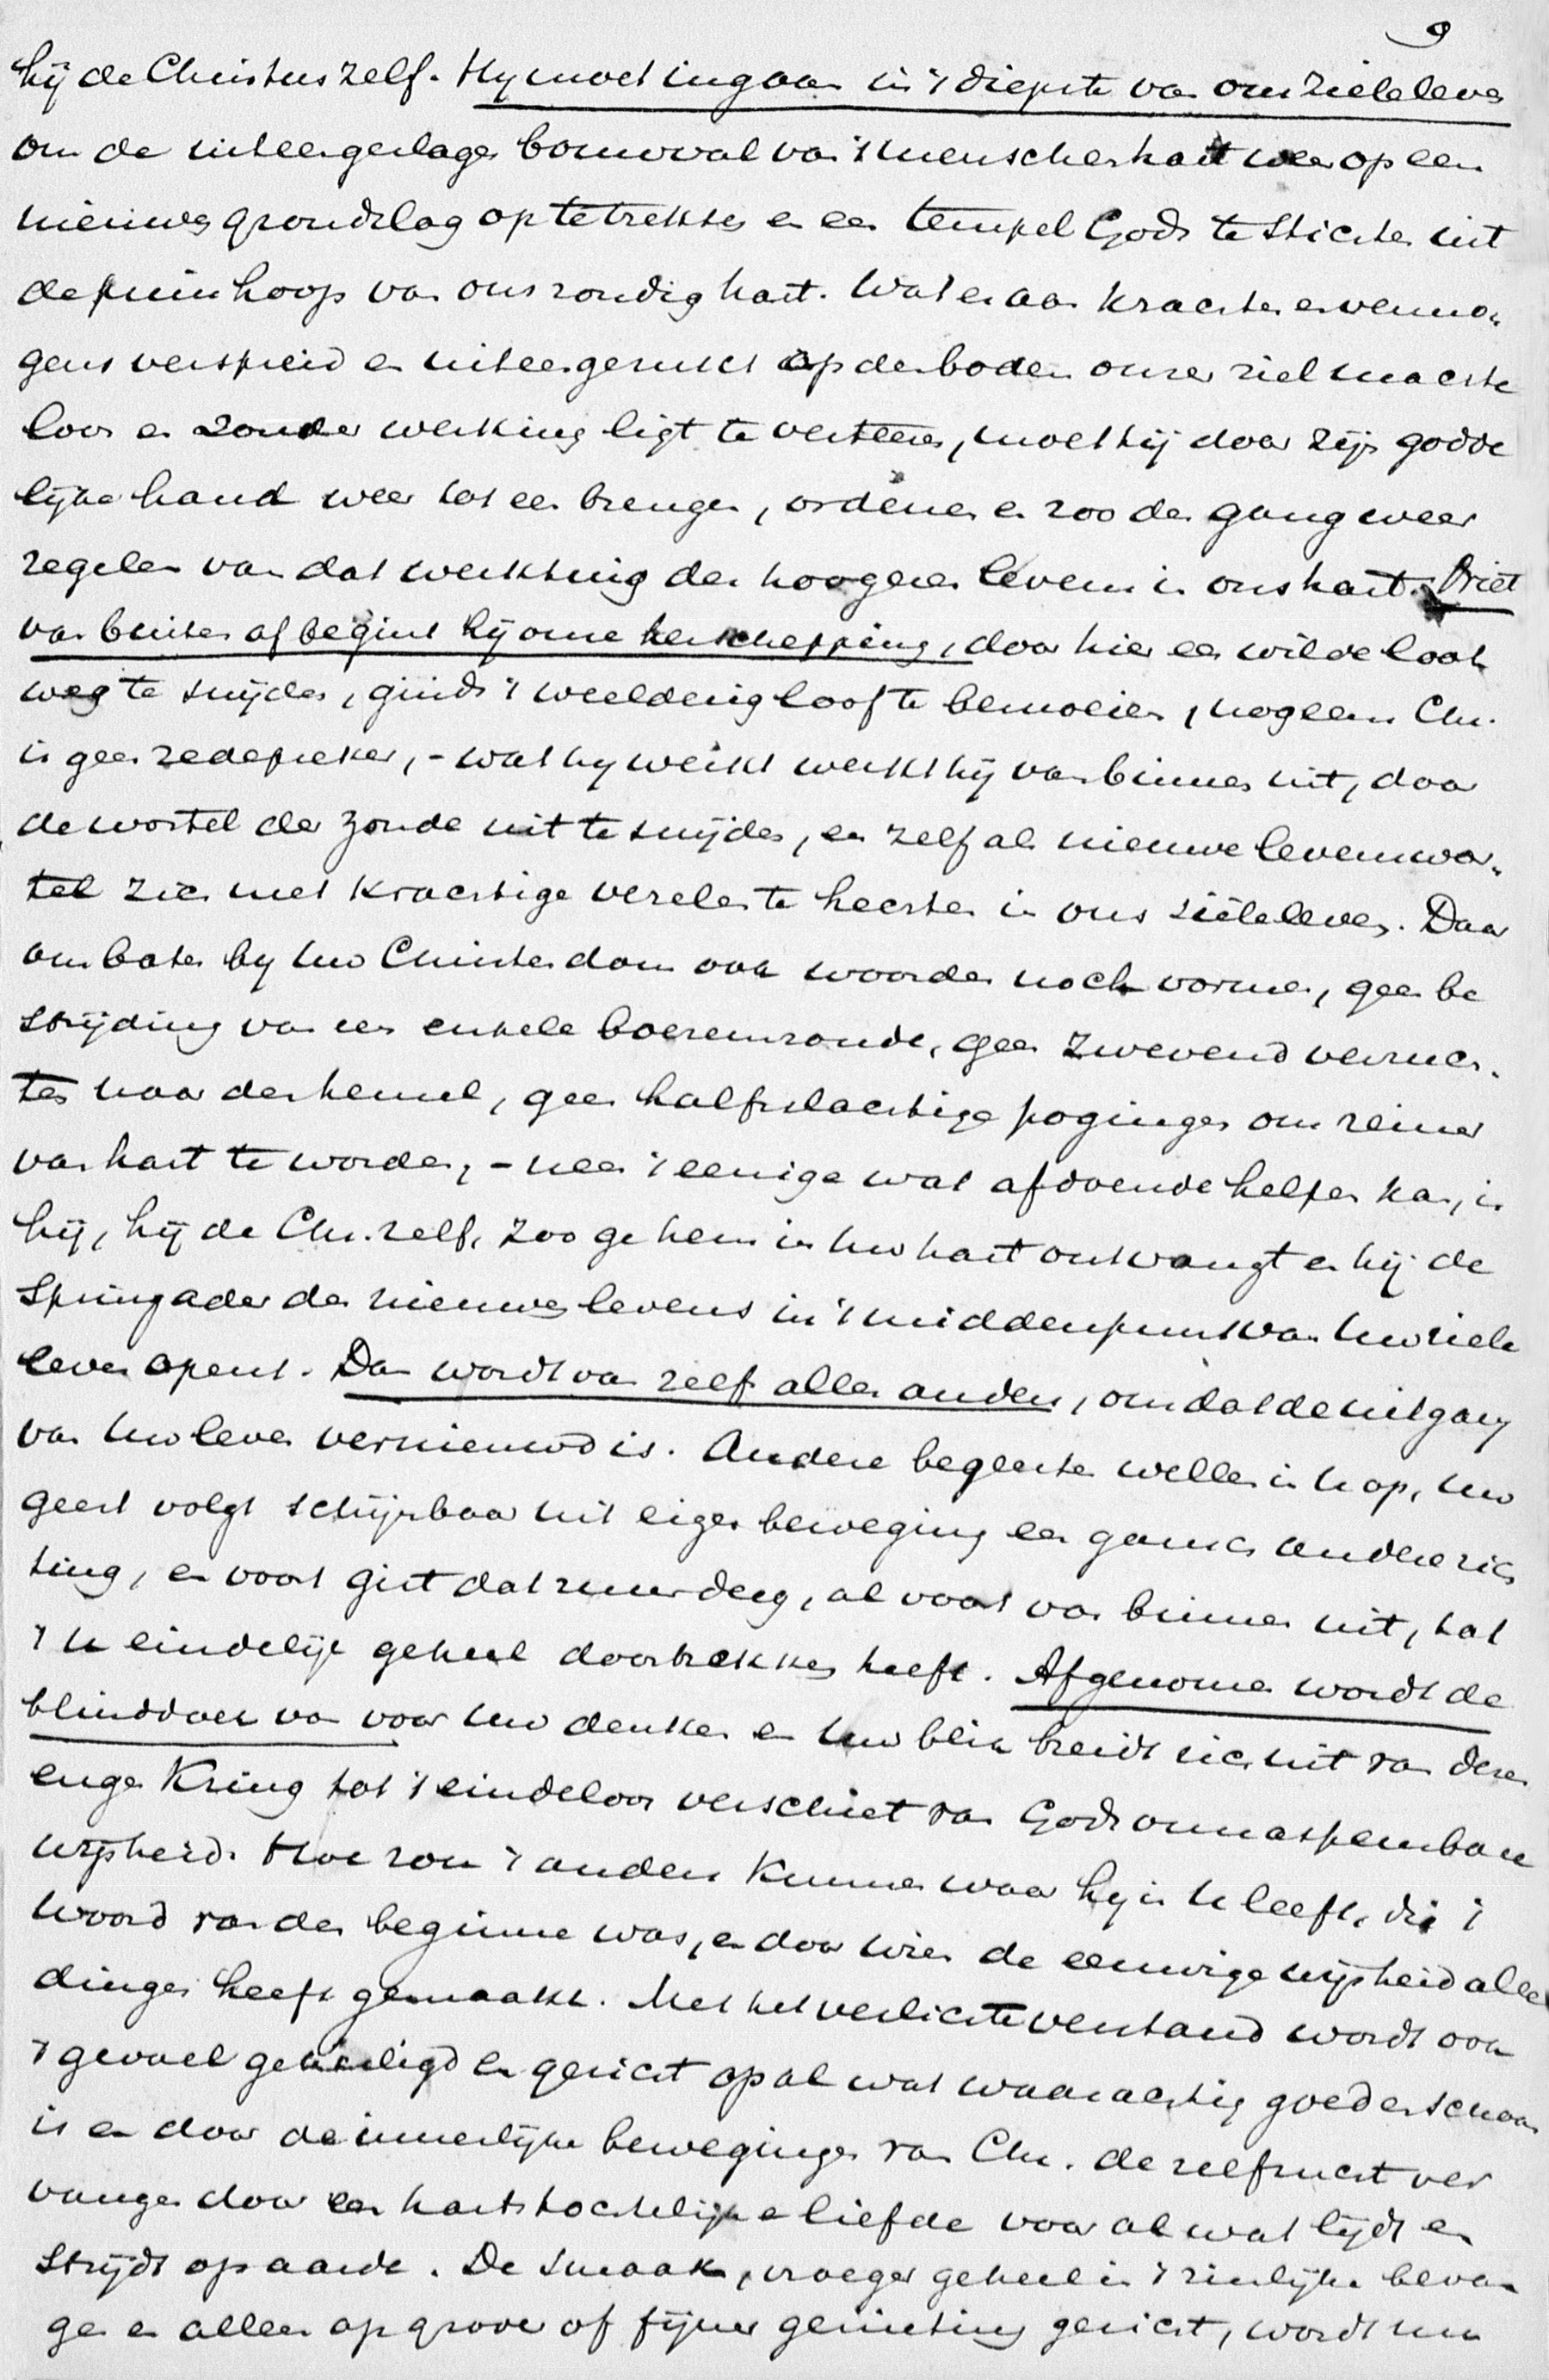 9
hij de Christus zelf. Hy moet ingaan in 't diepste van ons zieleleven
om de uiteengeslagen bouwval van 't menschenhart weer op een
nieuwen grondslag op te trekken en een tempel Gods te stichten uit
de puinhoop van ons zondig hart. Wat er aan krachten en vermo-
gens verspreid en uiteengerukt op den bodem onzer ziel machte
loos en zonder werking ligt te verteren, moet hij door zijn godde
lijke hand weer tot een brengen, ordenen en zoo den gang weer
regelen van dat werktuig des hoogeren levens in ons hart. Niet
van buiten af begint hij onze herschepping, door hier een wilde loot
weg te snijden, ginds 't weelderig loof te besnoeien, nogeens Chr.
is geen zedepreker, - wat hy werkt werkt hij van binnen uit, door
de wortel der zonde uit te snijden, en zelf als nieuwe levenswor-
tel zich met krachtige vezelen te hechten in ons zieleleven. Daar
om baten by uw Christendom ook woorden noch vormen, geen be
strijding van een enkele boezemzonde, geen zwevend verzuch-
ten naar den hemel, geen halfslachtige pogingen om reiner
van hart te worden, - neen 't eenige wat afdoende helpen kan, is
hij, hij de Chr. zelf, zoo ge hem in uw hart ontvangt en hij de
springader des nieuwen levens in 't middenpunt van uw ziele
leven opent. Dan wordt van zelf alles anders, omdat de uitgang
van uw leven vernieuwd is. Andere begeerten wellen in u op, uw
geest volgt schijnbaar uit eigen beweging een gansch andere rich
ting, en voort gist dat zuurdeeg, al voort van binnen uit, tot
't u eindelijk geheel doortrokken heeft. Afgenomen wordt de
blinddoek van voor uw denken en uw blik breidt zich uit van dezen
engen kring tot 't eindeloos verschiet van Gods onnaspeurbare
wijsheid. Hoe zou 't anders kunnen waar hij in u leeft, die 't
woord van den beginne was, en door wien de eeuwige wijsheid alle
dingen heeft gemaakt. Met het verlichte verstand wordt ook
't gevoel geheiligd en gericht op al wat waarachtig goed en schoon
is en door de innerlijke bewegingen van Chr. de zelfzucht ver
vangen door een hartstochtelijke liefde voor al wat lijdt en
strijdt op aarde. De smaak, vroeger geheel in 't zinlijke bevan
gen en alleen op grove of fijner genieting gericht, wordt nu